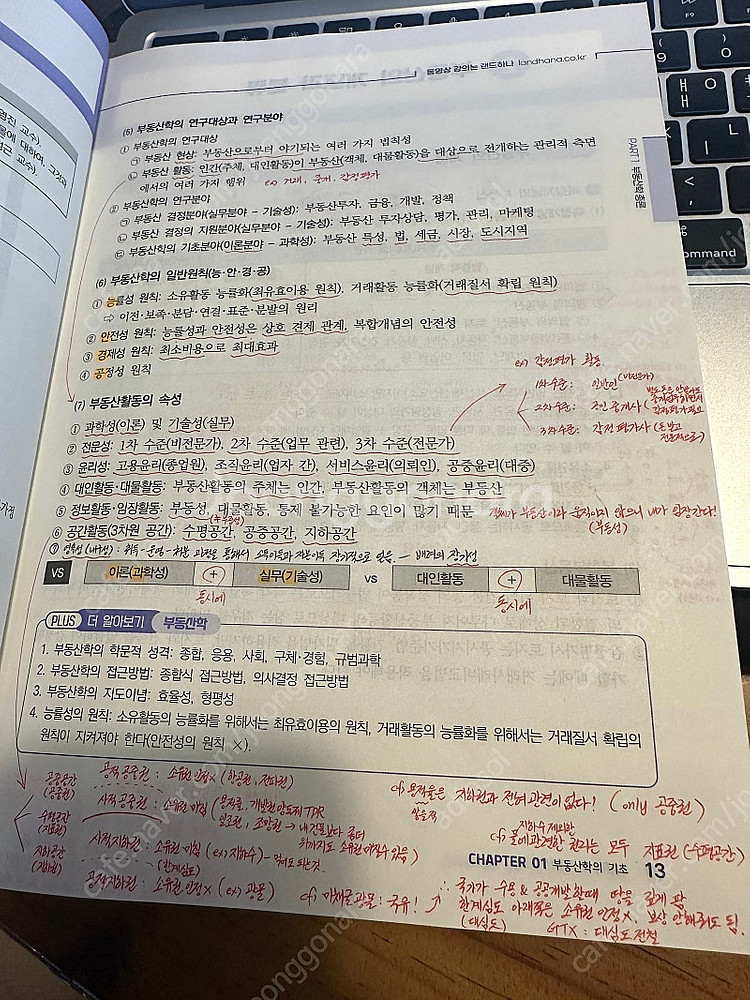 동영상 강의는 랜드하나 landhana.co.kr
PART 1 부동산학 총론
(5) 부동산학의 연구대상과 연구분야
① 부동산학의 연구대상
㉠ 부동산 현상: 부동산으로부터 야기되는 여러 가지 법칙성
㉡ 부동산 활동: 인간(주체, 대인활동)이 부동산(객체, 대물활동)을 대상으로 전개하는 관리적 측면
에서의 여러 가지 행위 ex) 거래, 중개, 감정평가
② 부동산학의 연구분야
㉠ 부동산 결정분야(실무분야 - 기술성): 부동산투자, 금융, 개발, 정책
㉡ 부동산 결정의 지원분야(실무분야 - 기술성): 부동산 투자상담, 평가, 관리, 마케팅
㉢ 부동산학의 기초분야(이론분야 - 과학성): 부동산 특성, 법, 세금, 시장, 도시지역
(6) 부동산학의 일반원칙(능·안·경·공)
① 능률성 원칙: 소유활동 능률화(최유효이용 원칙), 거래활동 능률화(거래질서 확립 원칙)
⇨ 이전·보족·분담·연결·표준·분발의 원리
② 안전성 원칙: 능률성과 안전성은 상호 견제 관계, 복합개념의 안전성
③ 경제성 원칙: 최소비용으로 최대효과
④ 공정성 원칙
ex) 감정평가 활동.
1차수준: 일반인 (비전문가)
2차수준: 공인중개사
3차수준: 감정평가사
(7) 부동산활동의 속성
① 과학성(이론) 및 기술성(실무)
② 전문성: 1차 수준(비전문가), 2차 수준(업무 관련), 3차 수준(전문가)
③ 윤리성: 고용윤리(종업원), 조직윤리(업자 간), 서비스윤리(의뢰인), 공중윤리(대중)
④ 대인활동·대물활동: 부동산활동의 주체는 인간, 부동산활동의 객체는 부동산
⑤ 정보활동·임장활동: 부동성, 대물활동, 통제 불가능한 요인이 많기 때문
객체가 부동산이라 움직이지 않으니 내가 임장간다!
(부동성)
⑥ 공간활동(3차원 공간): 수평공간, 공중공간, 지하공간
VS 이론(과학성) + 실무(기술성) vs 대인활동 + 대물활동
동시에 동시에
PLUS 더 알아보기 부동산학
1. 부동산학의 학문적 성격: 종합, 응용, 사회, 구체·경험, 규범과학
2. 부동산학의 접근방법: 종합식 접근방법, 의사결정 접근방법
3. 부동산학의 지도이념: 효율성, 형평성
4. 능률성의 원칙: 소유활동의 능률화를 위해서는 최유효이용의 원칙, 거래활동의 능률화를 위해서는 거래질서 확립의
원칙이 지켜져야 한다(안전성의 원칙 ×).
공중공간
(공중권)
수평공간
(지표권)
지하공간
(지하권)
공적공중권 : 소유권 인정X (항공권, 전파권)
사적공중권 : 소유권 미침 (용적률, 개발권양도제 TDR
일조권, 조망권
사적지하권 : 소유권 미침 (ex) 지하수)
(한계심도)
공적지하권 : 소유권 인정X (ex) 광물)
cf) 미채굴광물 : 국유!
cf) 용적률은 지하권과 전혀 관련이 없다! (only 공중권)
지하수 제외한
cf) 물에 관련한 권리는 모두 지표권 (수평공간)
CHAPTER 01 부동산학의 기초 13
∴ 국가가 수용 & 공공개발할때 땅을 깊게 팜
한계심도 아래쪽은 소유권 인정X, 보상 안해줘도 됨.
(대심도) GTX : 대심도전철